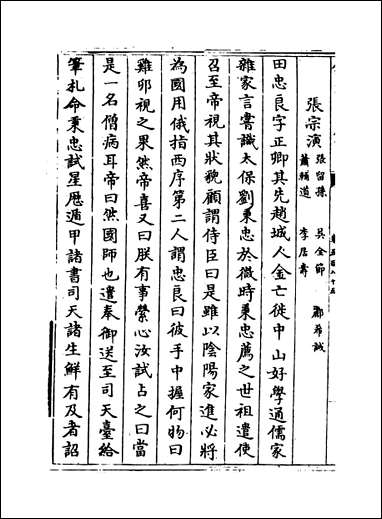 張宗演 張留孫 吳全節 酈希誠
蕭輔道 李居壽
田忠良字正卿其先趙城人金亡徙中山好學通儒家
雜家言嘗識太保劉秉忠於微時秉忠薦之世祖遣使
召至帝視其狀貌顧謂侍臣曰是雖以陰陽家進必將
為國用俄指西序第二人謂忠良曰彼手中握何物曰
雞卵視之果然帝喜又曰朕有事縈心汝試占之曰當
是一名僧病耳帝曰然國師也遣奉御送至司天臺給
筆札命秉忠試星厯遁甲諸書司天諸生鮮有及者詔